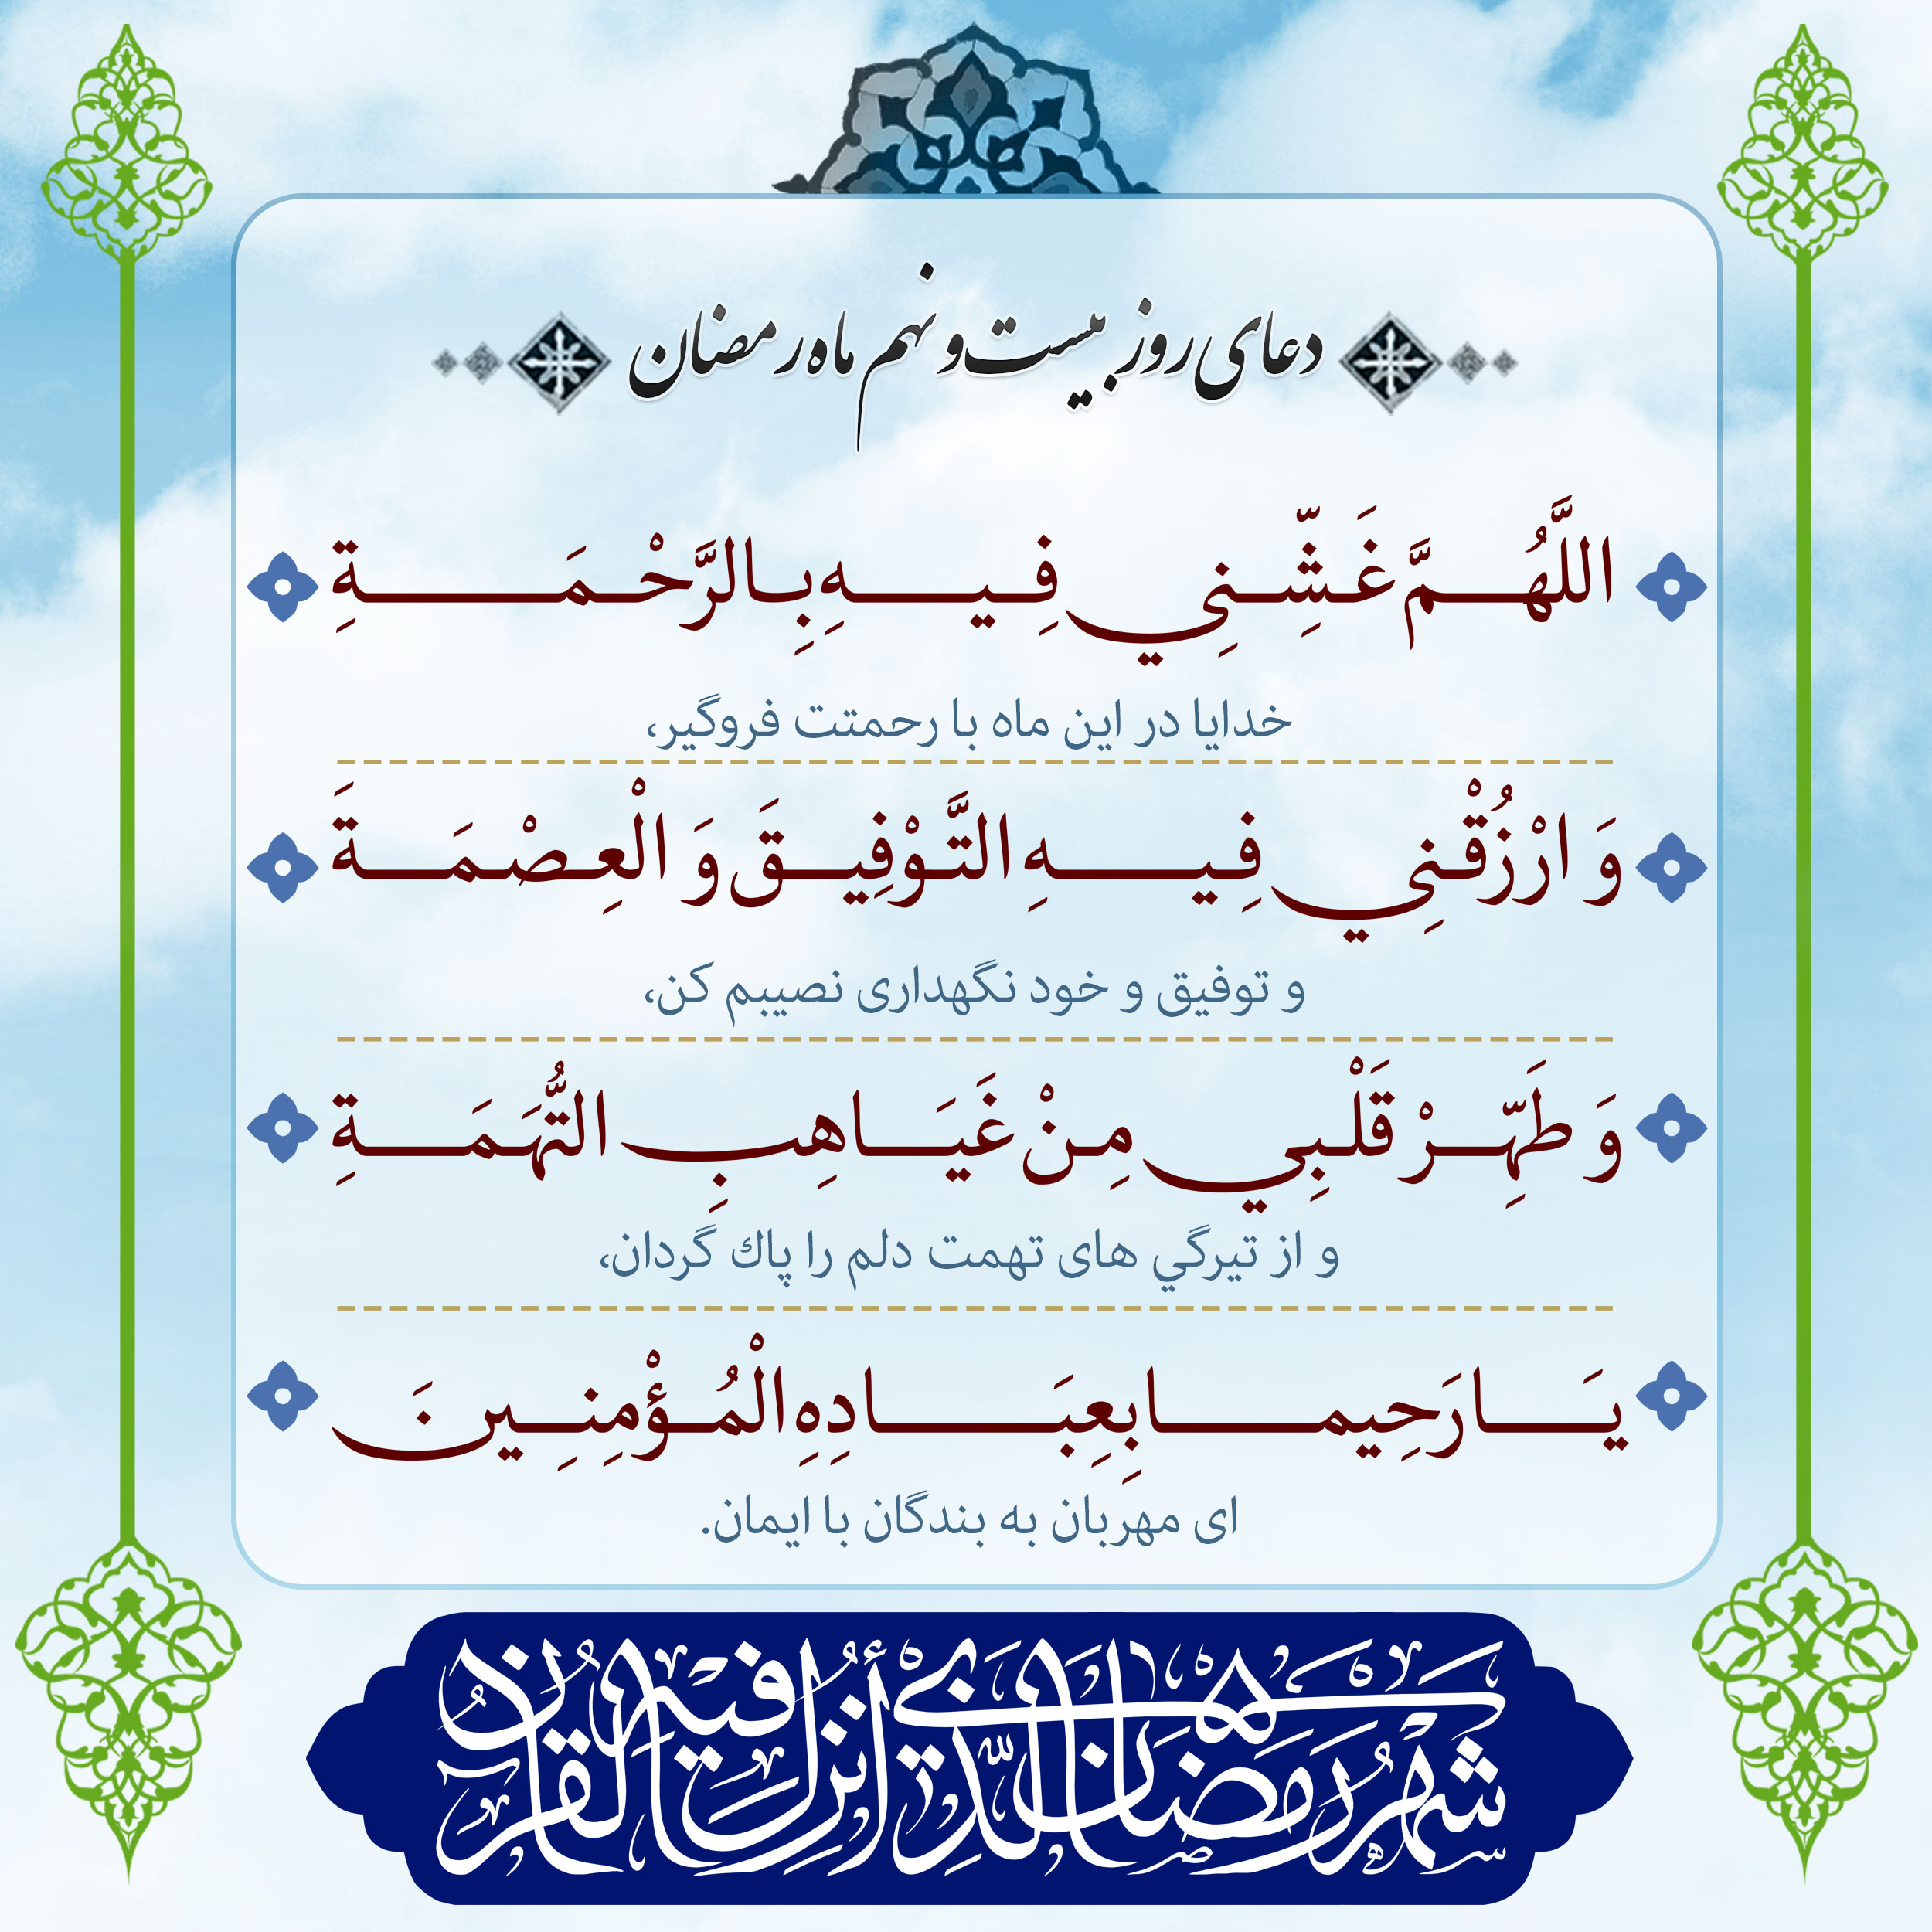 دعای روز بیست و نهم ماه رمضان
اللَّهُمَّ غَشِّنِي فِيهِ بِالرَّحْمَةِ
خدایا در این ماه با رحمتت فروگیر،
وَ ارْزُقْنِي فِيهِ التَّوْفِيقَ وَ الْعِصْمَةَ
و توفیق و خود نگهداری نصیبم کن،
وَ طَهِّرْ قَلْبِي مِنْ غَيَاهِبِ التُّهَمَةِ
و از تیرگي های تهمت دلم را پاك گردان،
يَا رَحِيما بِعِبَادِهِ الْمُؤْمِنِينَ
ای مهربان به بندگان با ایمان.
شهر رمضان الذي أنزل فيه القرآن